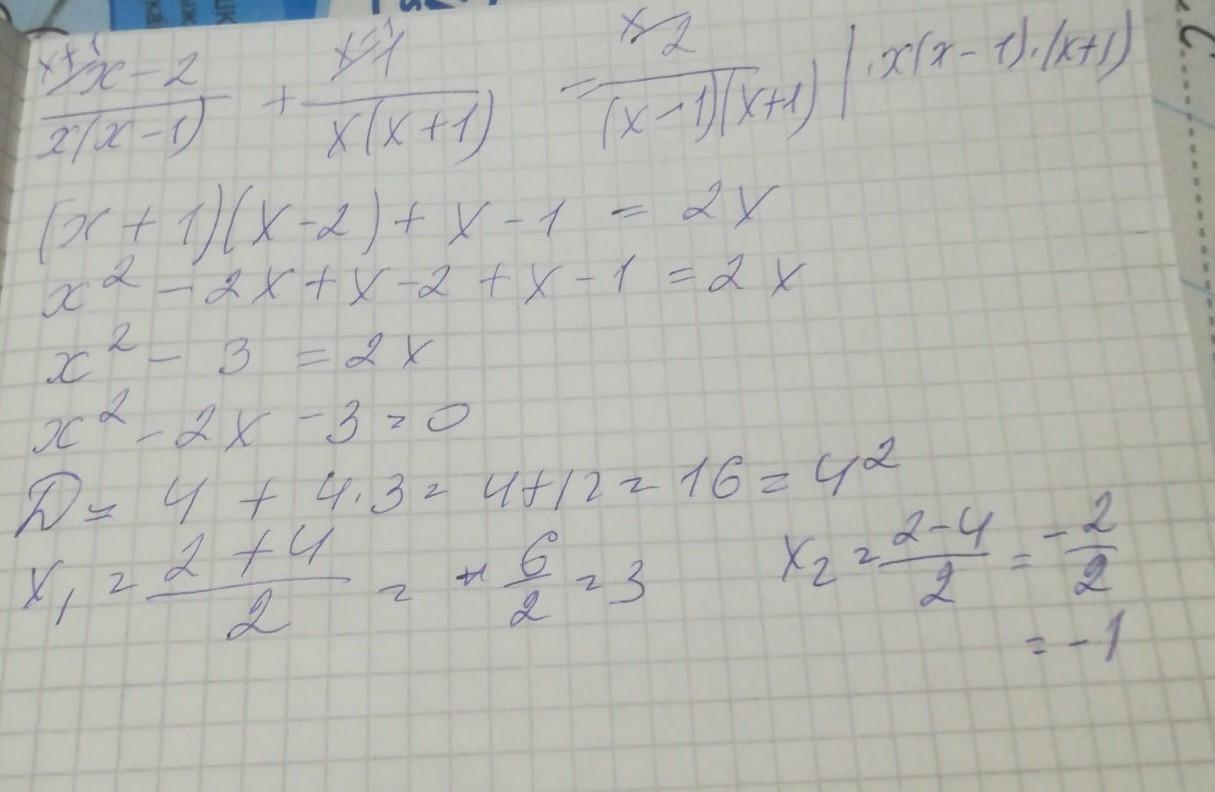 x+1⟋x-2 / x(x-1) + x-1⟋1 / x(x+1) = x⟋2 / (x-1)(x+1) | · x(x-1)·(x+1)
(x+1)(x-2)+x-1 = 2x
x²-2x+x-2+x-1=2x
x²-3=2x
x²-2x-3=0
D=4+4·3=4+12=16=4²
x₁=2+4/2=6/2=3 x₂=2-4/2=-2/2
=-1